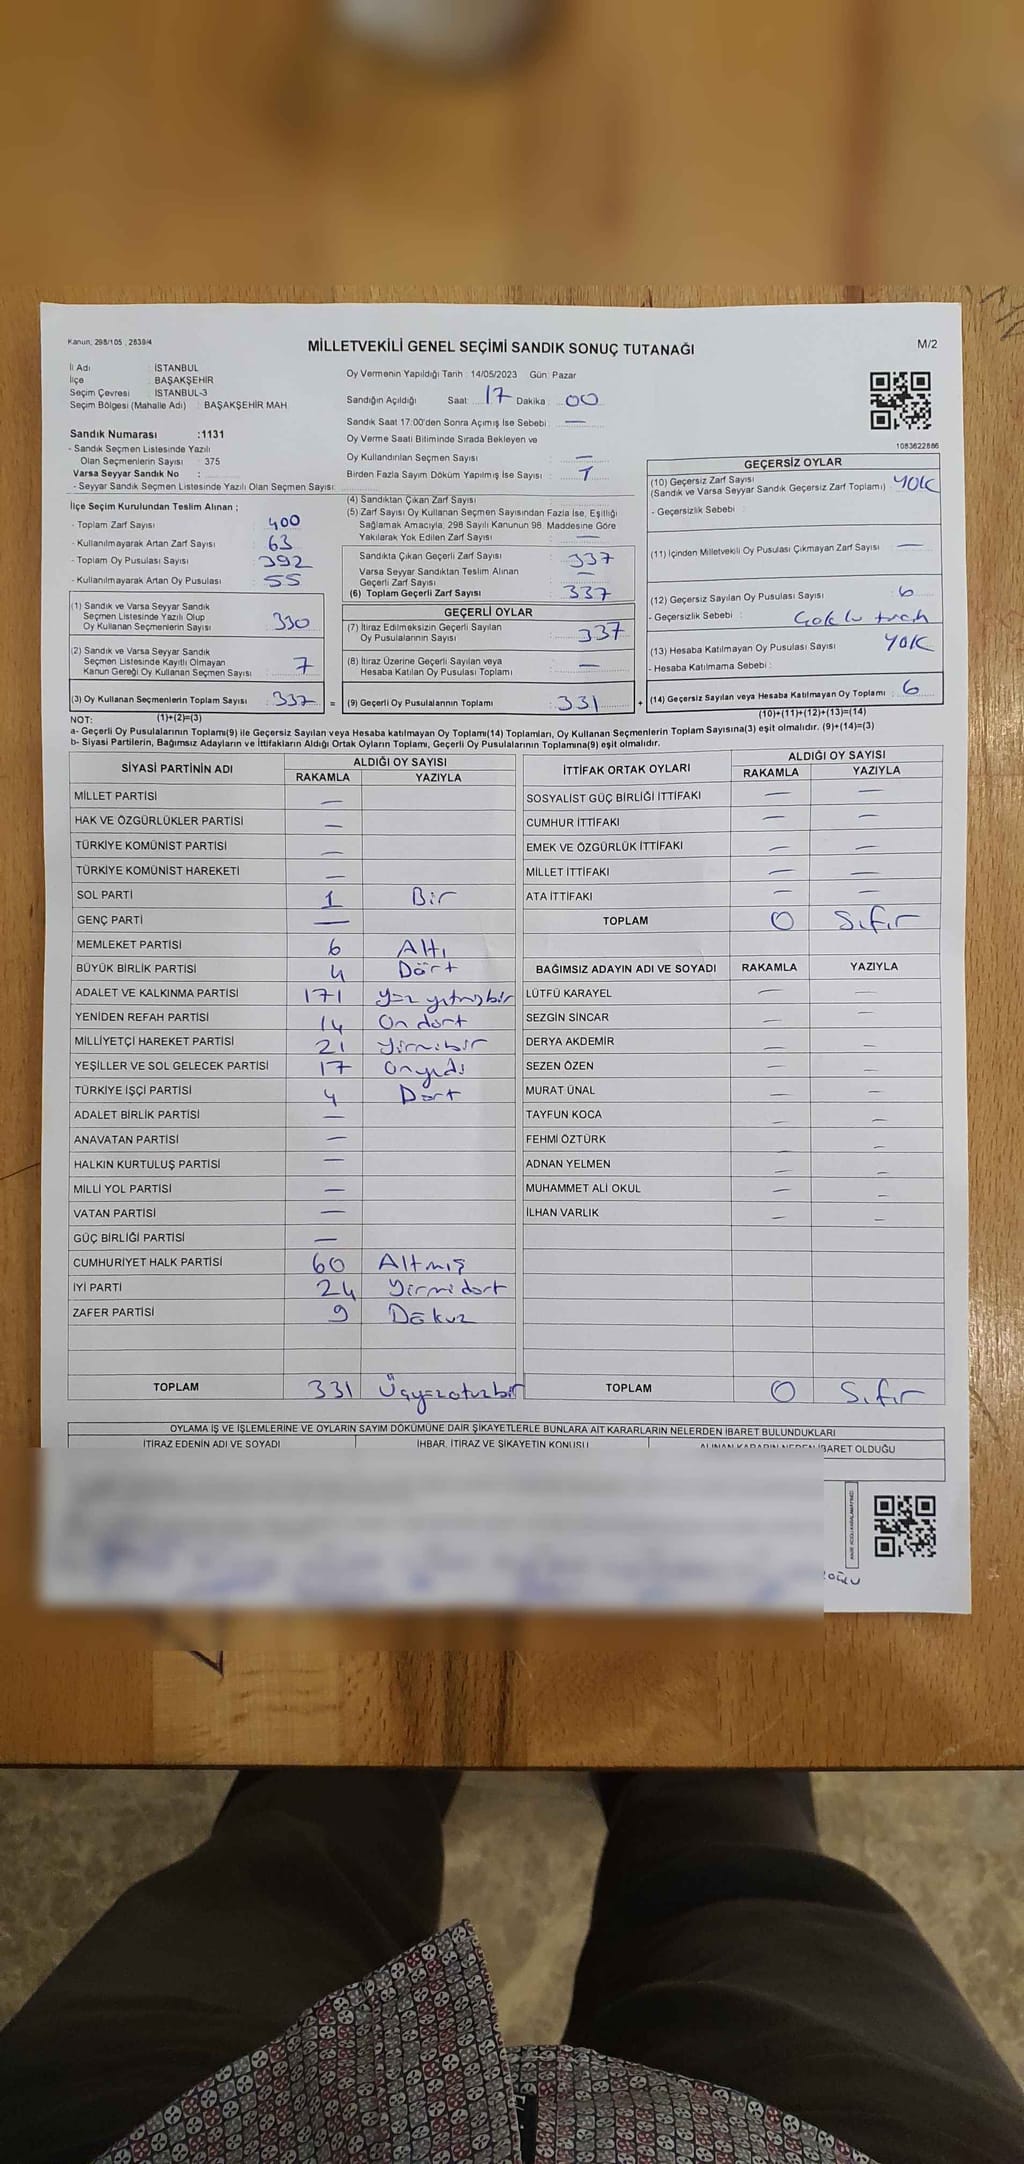 Kanun; 298/105 , 2839/4
MİLLETVEKİLİ GENEL SEÇİMİ SANDIK SONUÇ TUTANAĞI
M/2
İl Adı : İSTANBUL
İlçe : BAŞAKŞEHİR
Seçim Çevresi : İSTANBUL-3
Seçim Bölgesi (Mahalle Adı) : BAŞAKŞEHİR MAH
Sandık Numarası :1131
- Sandık Seçmen Listesinde Yazılı
Olan Seçmenlerin Sayısı : 375
Varsa Seyyar Sandık No :
- Seyyar Sandık Seçmen Listesinde Yazılı Olan Seçmen Sayısı:
Oy Vermenin Yapıldığı Tarih : 14/05/2023 Gün: Pazar
Sandığın Açıldığı Saat: 17 Dakika : 00
Sandık Saat 17:00'den Sonra Açımış İse Sebebi : —
Oy Verme Saati Bitiminde Sırada Bekleyen ve
Oy Kullandırılan Seçmen Sayısı : —
Birden Fazla Sayım Döküm Yapılmış İse Sayısı : 1
1083622886
İlçe Seçim Kurulundan Teslim Alınan ;
- Toplam Zarf Sayısı : 400
- Kullanılmayarak Artan Zarf Sayısı : 63
- Toplam Oy Pusulası Sayısı : 392
- Kullanılmayarak Artan Oy Pusulası : 55
(1) Sandık ve Varsa Seyyar Sandık
Seçmen Listesinde Yazılı Olup
Oy Kullanan Seçmenlerin Sayısı : 330
(2) Sandık ve Varsa Seyyar Sandık
Seçmen Listesinde Kayıtlı Olmayan
Kanun Gereği Oy Kullanan Seçmen Sayısı : 7
(3) Oy Kullanan Seçmenlerin Toplam Sayısı : 337 =
(4) Sandıktan Çıkan Zarf Sayısı :
(5) Zarf Sayısı Oy Kullanan Seçmen Sayısından Fazla İse, Eşitliği
Sağlamak Amacıyla; 298 Sayılı Kanunun 98. Maddesine Göre
Yakılarak Yok Edilen Zarf Sayısı : —
Sandıkta Çıkan Geçerli Zarf Sayısı : 337
Varsa Seyyar Sandıktan Teslim Alınan
Geçerli Zarf Sayısı : —
(6) Toplam Geçerli Zarf Sayısı : 337
GEÇERLİ OYLAR
(7) İtiraz Edilmeksizin Geçerli Sayılan
Oy Pusulalarının Sayısı : 337
(8) İtiraz Üzerine Geçerli Sayılan veya
Hesaba Katılan Oy Pusulası Toplamı : —
(9) Geçerli Oy Pusulalarının Toplamı : 331 +
GEÇERSİZ OYLAR
(10) Geçersiz Zarf Sayısı
(Sandık ve Varsa Seyyar Sandık Geçersiz Zarf Toplamı) : YOK
- Geçersizlik Sebebi :
(11) İçinden Milletvekili Oy Pusulası Çıkmayan Zarf Sayısı : —
(12) Geçersiz Sayılan Oy Pusulası Sayısı : 6
- Geçersizlik Sebebi :
(13) Hesaba Katılmayan Oy Pusulası Sayısı : YOK
- Hesaba Katılmama Sebebi :
(14) Geçersiz Sayılan veya Hesaba Katılmayan Oy Toplamı : 6
NOT: (1)+(2)=(3)
(10)+(11)+(12)+(13)=(14)
a- Geçerli Oy Pusulalarının Toplamı(9) ile Geçersiz Sayılan veya Hesaba katılmayan Oy Toplamı(14) Toplamları, Oy Kullanan Seçmenlerin Toplam Sayısına(3) eşit olmalıdır. (9)+(14)=(3)
b- Siyasi Partilerin, Bağımsız Adayların ve İttifakların Aldığı Ortak Oyların Toplamı, Geçerli Oy Pusulalarının Toplamına(9) eşit olmalıdır.
SİYASİ PARTİNİN ADI ALDIĞI OY SAYISI
RAKAMLA YAZIYLA
MİLLET PARTİSİ —
HAK VE ÖZGÜRLÜKLER PARTİSİ —
TÜRKİYE KOMÜNİST PARTİSİ —
TÜRKİYE KOMÜNİST HAREKETİ —
SOL PARTİ 1 Bir
GENÇ PARTİ —
MEMLEKET PARTİSİ 6 Altı
BÜYÜK BİRLİK PARTİSİ 4 Dört
ADALET VE KALKINMA PARTİSİ 171 Yüz yetmişbir
YENİDEN REFAH PARTİSİ 14 On dört
MİLLİYETÇİ HAREKET PARTİSİ 21 Yirmibir
YEŞİLLER VE SOL GELECEK PARTİSİ 17 Onyedi
TÜRKİYE İŞÇİ PARTİSİ 4 Dört
ADALET BİRLİK PARTİSİ —
ANAVATAN PARTİSİ —
HALKIN KURTULUŞ PARTİSİ —
MİLLİ YOL PARTİSİ —
VATAN PARTİSİ —
GÜÇ BİRLİĞİ PARTİSİ —
CUMHURİYET HALK PARTİSİ 60 Altmış
İYİ PARTİ 24 Yirmidört
ZAFER PARTİSİ 9 Dokuz
TOPLAM 331 Üçyüzotuzbir
İTTİFAK ORTAK OYLARI ALDIĞI OY SAYISI
RAKAMLA YAZIYLA
SOSYALİST GÜÇ BİRLİĞİ İTTİFAKI — —
CUMHUR İTTİFAKI — —
EMEK VE ÖZGÜRLÜK İTTİFAKI — —
MİLLET İTTİFAKI — —
ATA İTTİFAKI — —
TOPLAM 0 Sıfır
BAĞIMSIZ ADAYIN ADI VE SOYADI RAKAMLA YAZIYLA
LÜTFÜ KARAYEL — —
SEZGİN SİNCAR — —
DERYA AKDEMİR — —
SEZEN ÖZEN — —
MURAT ÜNAL — —
TAYFUN KOCA — —
FEHMİ ÖZTÜRK —
ADNAN YELMEN — —
MUHAMMET ALİ OKUL — —
İLHAN VARLIK — —
TOPLAM 0 Sıfır
OYLAMA İŞ VE İŞLEMLERİNE VE OYLARIN SAYIM DÖKÜMÜNE DAİR ŞİKAYETLERLE BUNLARA AİT KARARLARIN NELERDEN İBARET BULUNDUKLARI
İTİRAZ EDENİN ADI VE SOYADI İHBAR, İTİRAZ VE ŞİKAYETİN KONUSU ALINAN KARARIN NEDEN İBARET OLDUĞU